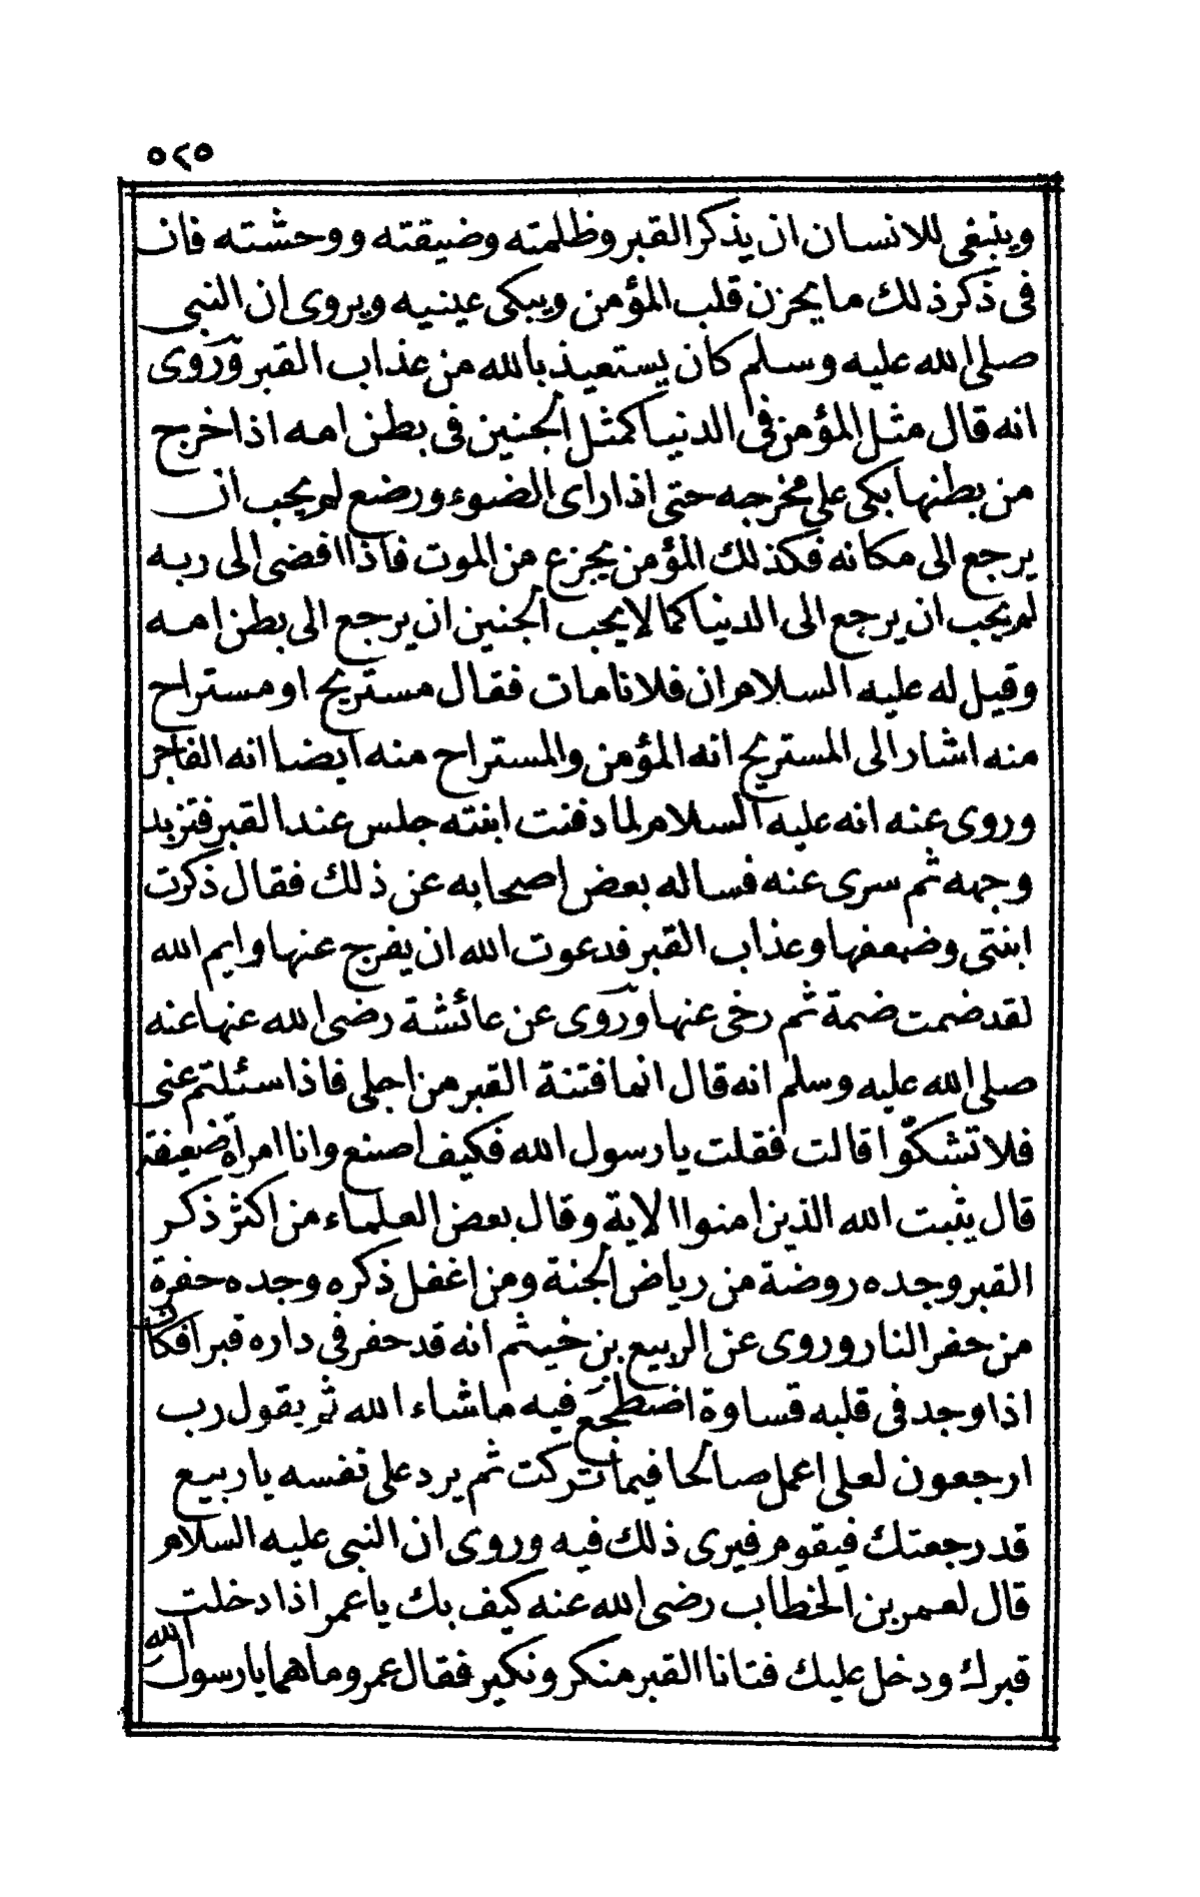 ٥٢٥
وينبغى للانسان ان يذكر القبر وظلمته وضيقته ووحشته فان
فى ذكر ذلك ما يحزن قلب المؤمن ويبكى عينيه ويروى ان النبى
صلى الله عليه وسلم كان يستعيذ بالله من عذاب القبر وروى
انه قال مثل المؤمن فى الدنيا كمثل الجنين فى بطن امه اذا خرج
من بطنها بكى على مخرجه حتى اذا راى الضوء ورضع لم يحب ان
يرجع الى مكانه فكذلك المؤمن يجزع من الموت فاذا افضى الى ربه
لم يحب ان يرجع الى الدنيا كما لا يحب الجنين ان يرجع الى بطن امه
وقيل له عليه السلام ان فلانا مات فقال مستريح او مستراح
منه اشار الى المستريح انه المؤمن والمستراح منه ايضا انه الفاجر
وروى عنه انه عليه السلام لما دفنت ابنته جلس عند القبر فتربد
وجهه ثم سرى عنه فساله بعض اصحابه عن ذلك فقال ذكرت
ابنتى وضعفها وعذاب القبر فدعوت الله ان يفرج عنها وايم الله
لقد ضمت ضمة ثم رخى عنها وروى عن عائشة رضى الله عنها عنه
صلى الله عليه وسلم انه قال انما فتنة القبر من اجلى فاذا سئلتم عنى
فلا تشكوا قالت فقلت يا رسول الله فكيف اصنع وانا امراة ضعيفة
قال يثبت الله الذين امنوا الاية وقال بعض العلماء من اكثر ذكر
القبر وجده روضة من رياض الجنة ومن اغفل ذكره وجده حفرة
من حفر النار وروى عن الربيع بن خيثم انه قد حفر فى داره قبرا فكان
اذا وجد فى قلبه قساوة اضطجع فيه ما شاء الله ثم يقول رب
ارجعون لعلى اعمل صالحا فيما تركت ثم يرد على نفسه يا ربيع
قد رجعتك فيقوم فيرى ذلك فيه وروى ان النبى عليه السلام
قال لعمر بن الخطاب رضى الله عنه كيف بك يا عمر اذا دخلت
قبرك ودخل عليك فتانا القبر منكر ونكير فقال عمر وما هما يا رسول الله